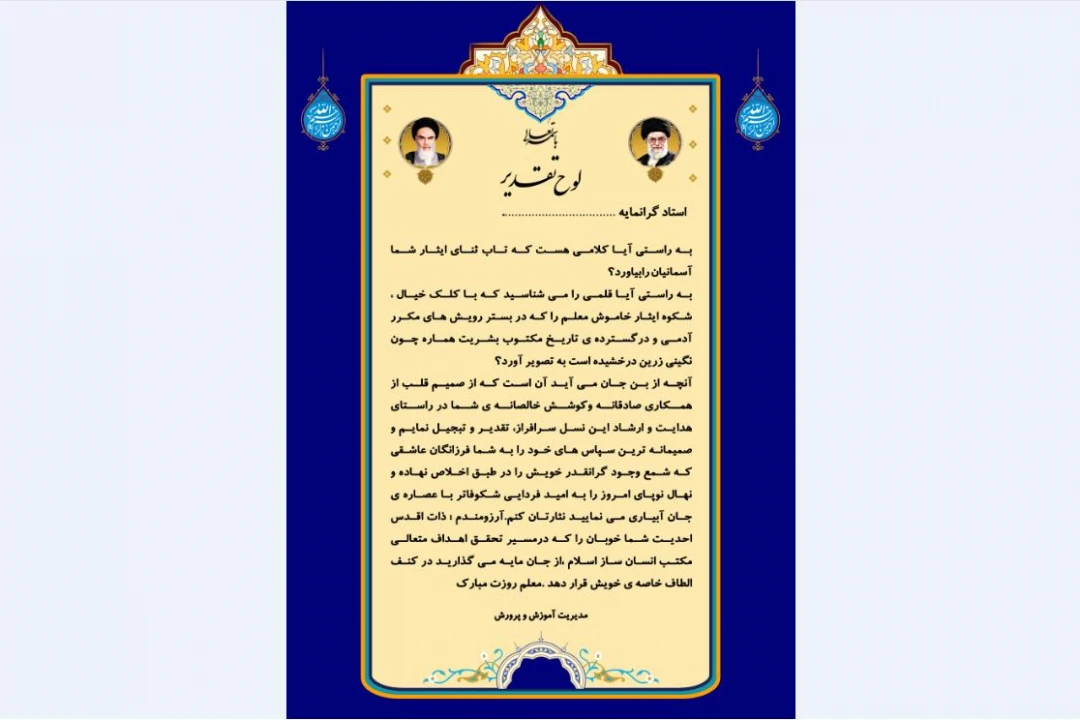 باسمه تعالی
لوح تقدیر
استاد گرانمایه ......................................
به راستی آیا کلامی هست که تاب ثنای ایثار شما
آسمانیان رابیاورد؟
به راستی آیا قلمی را می شناسید که با کلک خیال ،
شکوه ایثار خاموش معلم را که در بستر رویش های مکرر
آدمی و درگستره ی تاریخ مکتوب بشریت هماره چون
نگینی زرین درخشیده است به تصویر آورد؟
آنچه از بن جان می آید آن است که از صمیم قلب از
همکاری صادقانه وکوشش خالصانه ی شما در راستای
هدایت و ارشاد این نسل سرافراز، تقدیر و تبجیل نمایم و
صمیمانه ترین سپاس های خود را به شما فرزانگان عاشقی
که شمع وجود گرانقدر خویش را در طبق اخلاص نهاده و
نهال نوپای امروز را به امید فردایی شکوفاتر با عصاره ی
جان آبیاری می نمایید نثارتان کنم.آرزومندم ؛ ذات اقدس
احدیت شما خوبان را که درمسیر تحقق اهداف متعالی
مکتب انسان ساز اسلام ،از جان مایه می گذارید در کنف
الطاف خاصه ی خویش قرار دهد .معلم روزت مبارک
مدیریت آموزش و پرورش